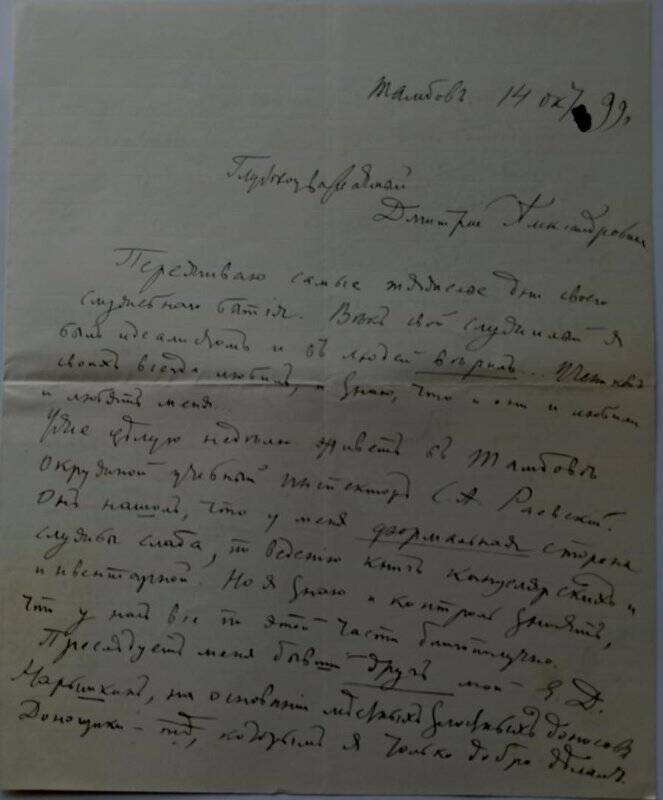 Тамбовъ 14 окт 99 г.
Глубокоуважаемый
Дмитрій Александровичъ
Переживаю самые тяжелые дни своего
служебнаго бытія. Вѣкъ свой служилый я
былъ идеалистомъ и въ людей вѣрилъ... Питомцевъ
своихъ всегда любилъ, и знаю, что и они и любили
и любятъ меня.
Уже цѣлую недѣлю живетъ въ Тамбовѣ
окружной учебный инспекторъ С А Раевскій.
Онъ нашолъ, что у меня формальная сторона
службы слаба, по веденію книгъ канцелярскихъ и
инвентарной. Но я знаю и контроль знаетъ,
что у насъ все по этой части благополучно.
Преслѣдуетъ меня бывшій другъ мой Я Д.
на основаніи мѣстныхъ злостныхъ доносовъ
Доносчики — которымъ я только добро дѣлалъ.